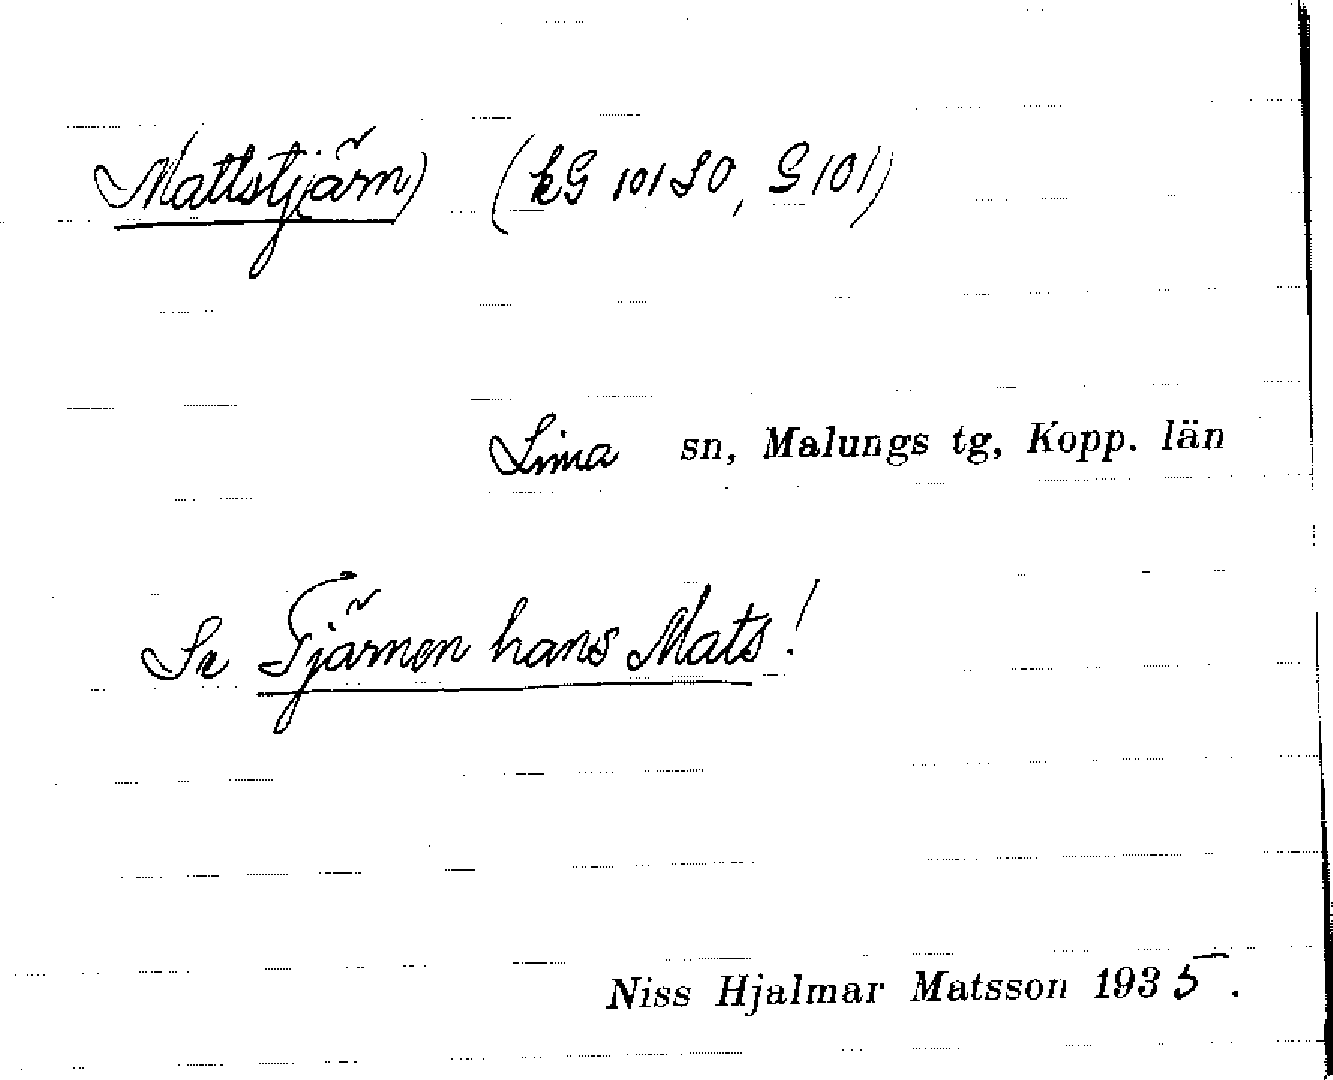 Mattstjärn) (kG 101 SO, G 101)
Lima sn, Malungs tg, Kopp. län
Se Tjärnen hans Mats!
Niss Hjalmar Matsson 1935.